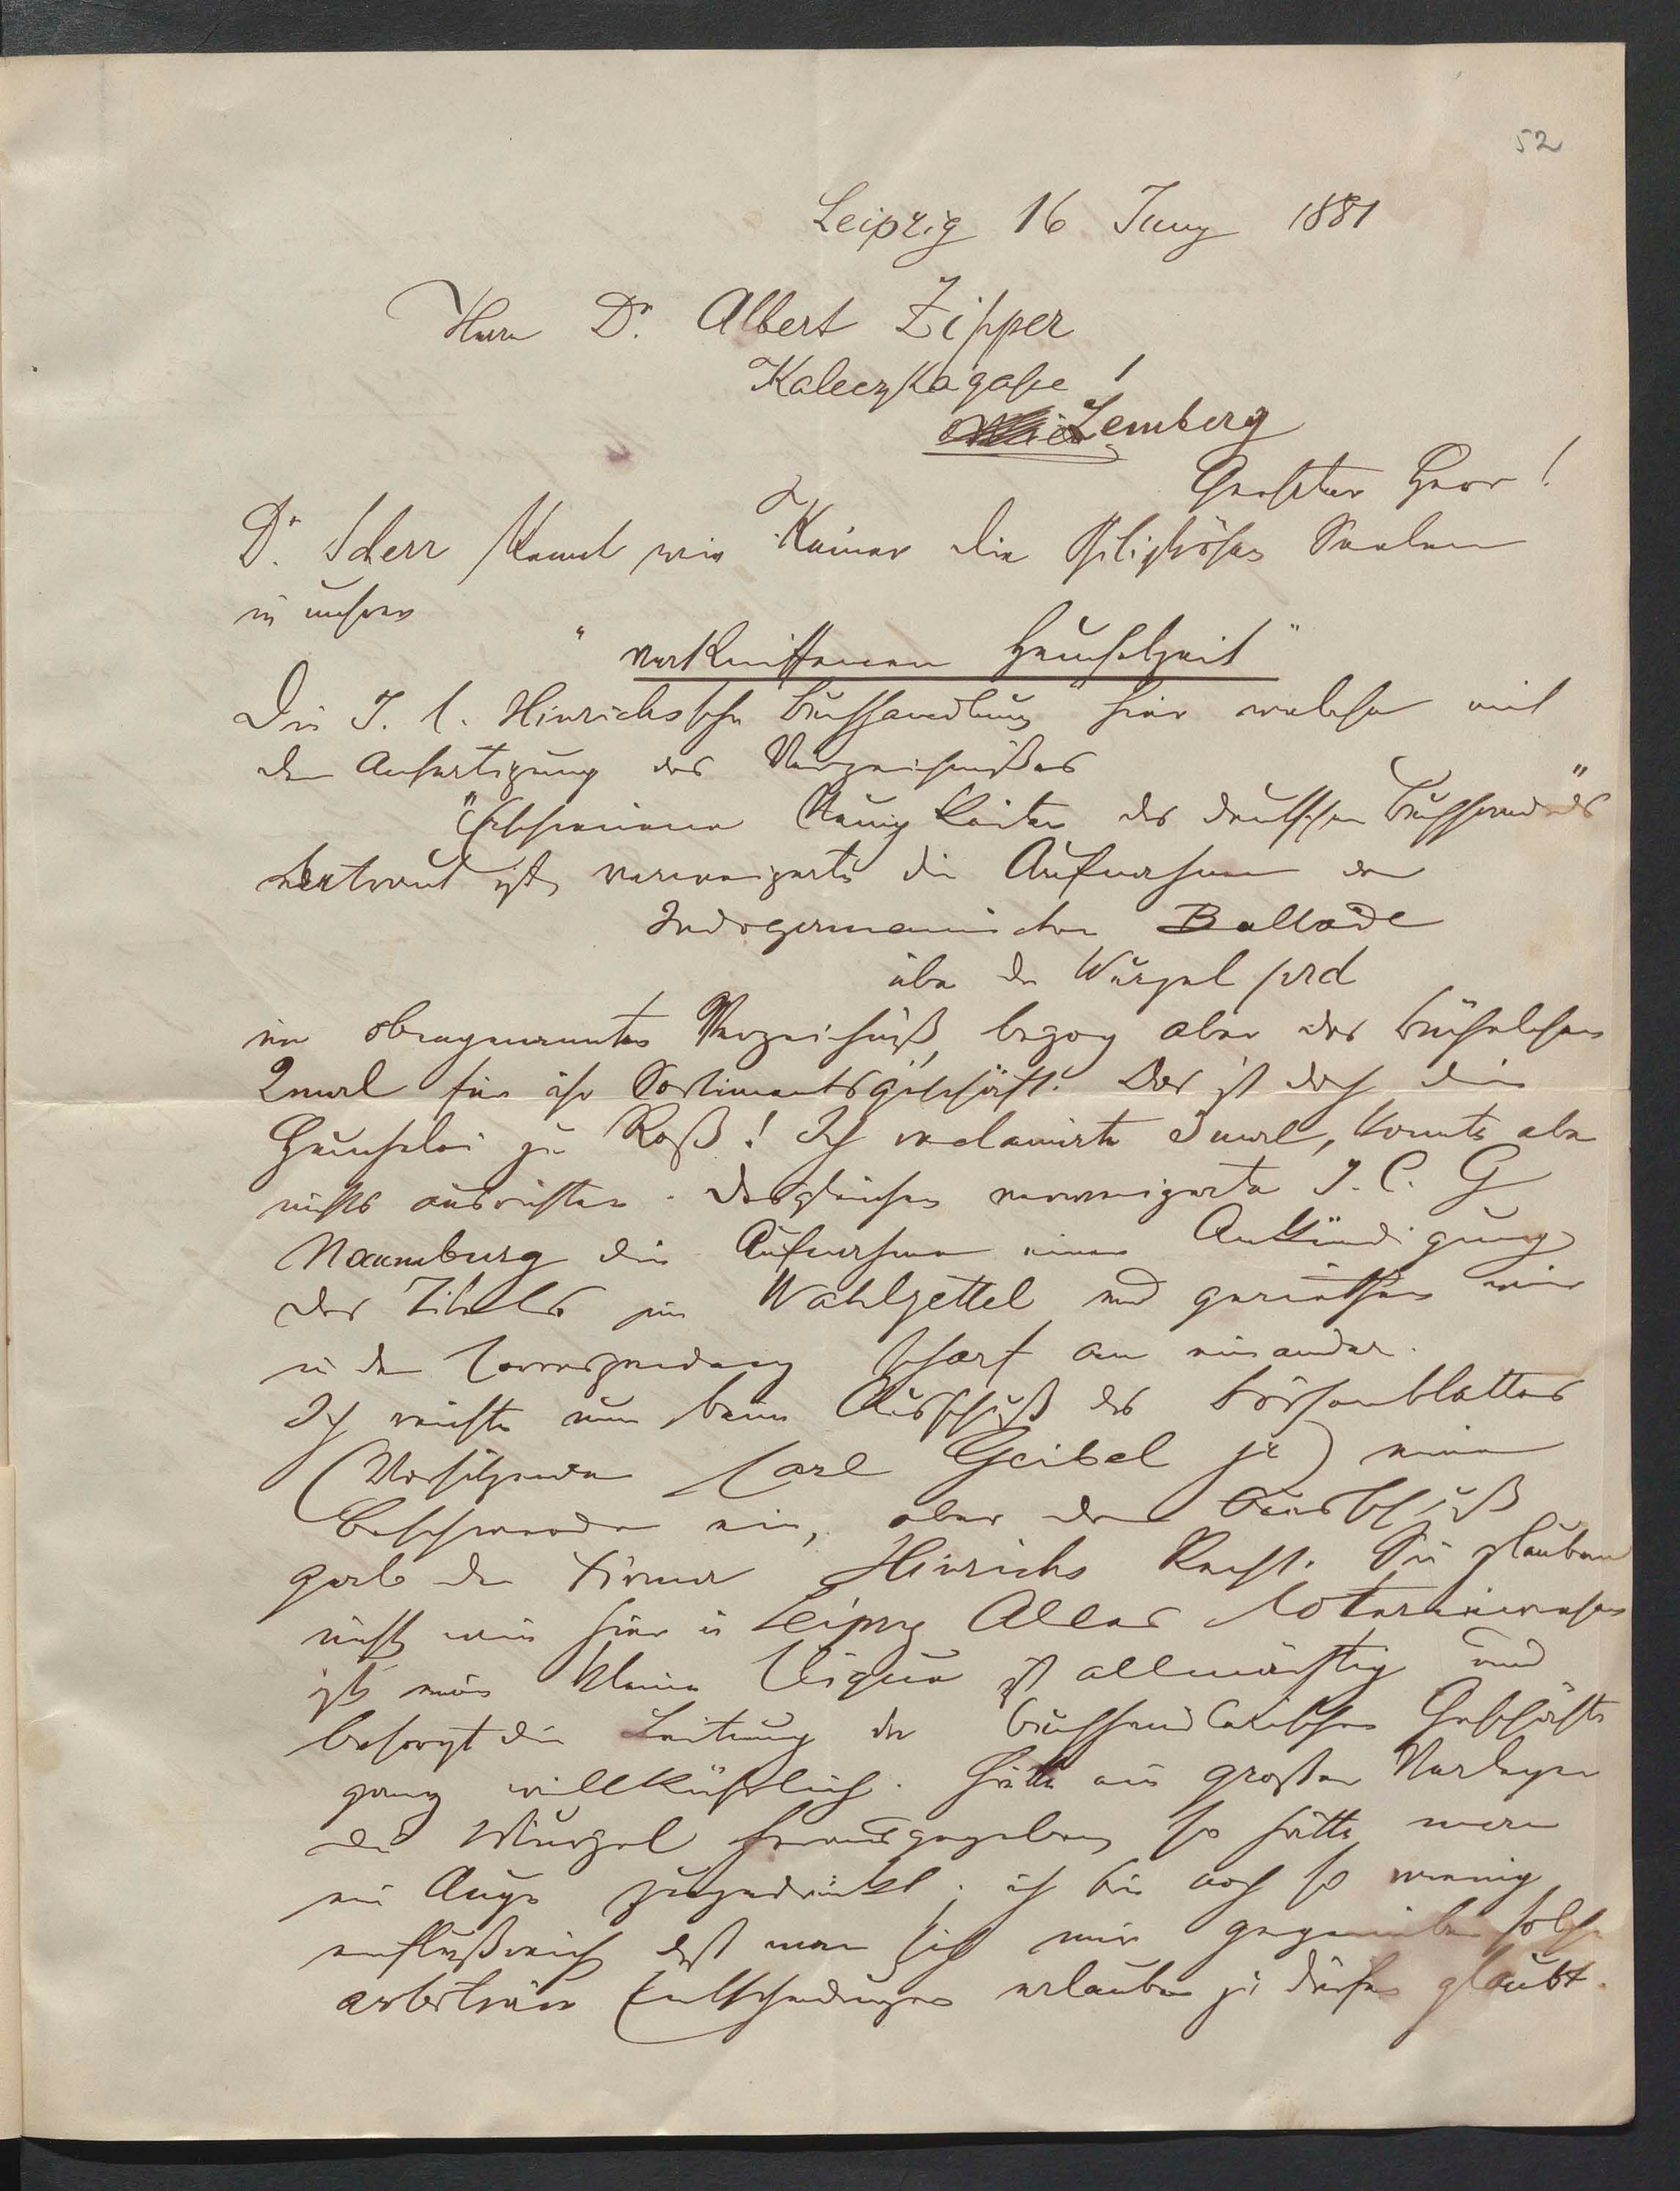 52
Leipzig 16 Juny 1881
Herrn Dr. Albert Zipper
Kaleczkagasse 1
Lemberg
Geehrter Herr!
Dr. Scherr kennt wie Keiner die Philiströsen Seelen
in unserer
"verkniffenen Heuchelzeit"
Die J. C. Hinrichssche Buchhandlung hier welche mit
der Anfertigung des Verzeichnißes
"Erschienene Neuigkeiten des deutschen Buchhandels"
betraut ist, verweigerte die Aufnahme der
Indogermanischen Ballade
über die Wurzel prd
im obengenannten Verzeichniß, bezog aber das Büchelchen
2mal für ihr Sortimentsgeschäft. Das ist doch die
Heuchelei zu Roß! Ich reclamirte 3mal, konnte aber
nichts ausrichten. Desgleichen verweigerte J. C. G
Naumburg die Aufnahme einer Ankündigung
des Titels im Wahlzettel und geriethen wir
in der Correspondenz scharf an einander.
Ich reichte nun beim Ausschuß des Börsenblattes
(Vorsitzender Carl Geibel jr) eine
Beschwerde ein, aber der Ausschuß
gab der Firma Hinrichs Recht. Sie glauben
nicht wie hier in Leipzig Alles
ist eine kleine Clique ist allmächtig und
besorgt die Leitung der buchhändlerischen Geschäfte
ganz willkührlich. Hätte ein großer Verleger
die Wurzel herausgegeben so hätte man
ein Auge zugedrückt; ich bin noch so wenig
einflußreich daß man sich mir gegenüber solche
arbiträre Entscheidungen erlauben zu dürfen glaubt.